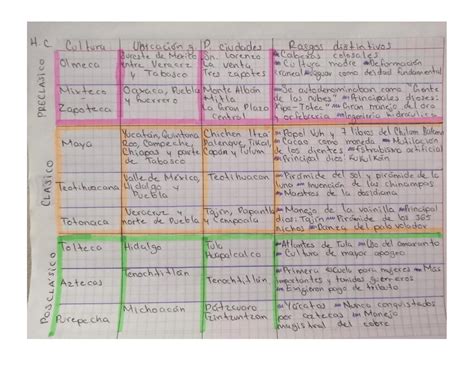 H.C Cultura Ubicación g. P. ciudades Rasgos distintivos
PRECLASICO
Olmeca
Sureste de Mexico
entre Veracruz
y Tabasco
Sn. Lorenzo
La venta
Tres zapotes
Cabezas colosales
Cultura madre Deformación
craneal Jaguar como deidad fundamental
Mixteca
Zapoteca
Oaxaca, Puebla
y Guerrero
Monte Albán
Mitla
La Gran Plaza
central
Se autodenominaban como "Gente
de las nubes" Principales dioses:
Xipe-Totec Gran manejo del oro
y orfebreria Ingeniería hidraulica
CLASICO
Maya
Yucatán, Quintana
Roo, Campeche,
Chiapas y parte
de Tabasco
Chichen Itza
Palenque, Tikal,
Copán y Tulum
Popol Vuh y 7 libros del Chilam Balam
Cacao como moneda Mutilacion
de los dientes Estrabismo artificial
Principal dios Kukulkán
Teotihuacana
Valle de México,
Hidalgo y
Puebla
Teotihuacan
Pirámide del sol y pirámide de la
luna Invención de las chinampas
Maestros de la obsidiana
Totonaca
Veracruz y
norte de Puebla
Tajin, Papantla
y Cempoala
Manejo de la vainilla Principal
dios: Tajin Pirámide de los 365
nichos Danza del palo volador
POSCLASICO
Tolteca
Hidalgo
Tula
Huapalcalco
Atlantes de Tula Uso del amaranto
Cultura de mayor apogeo
Aztecas
Tenochtitlán
Tenochtitlán
Primera escuela para mujeres Más
importantes y temidos guerreros
Exigieron pago de tributo
Purepecha
Michoacán
Pátzcuaro
Tzintzuntzan
Yácatas Nunca conquistados
por aztecas Manejo
magistral del cobre